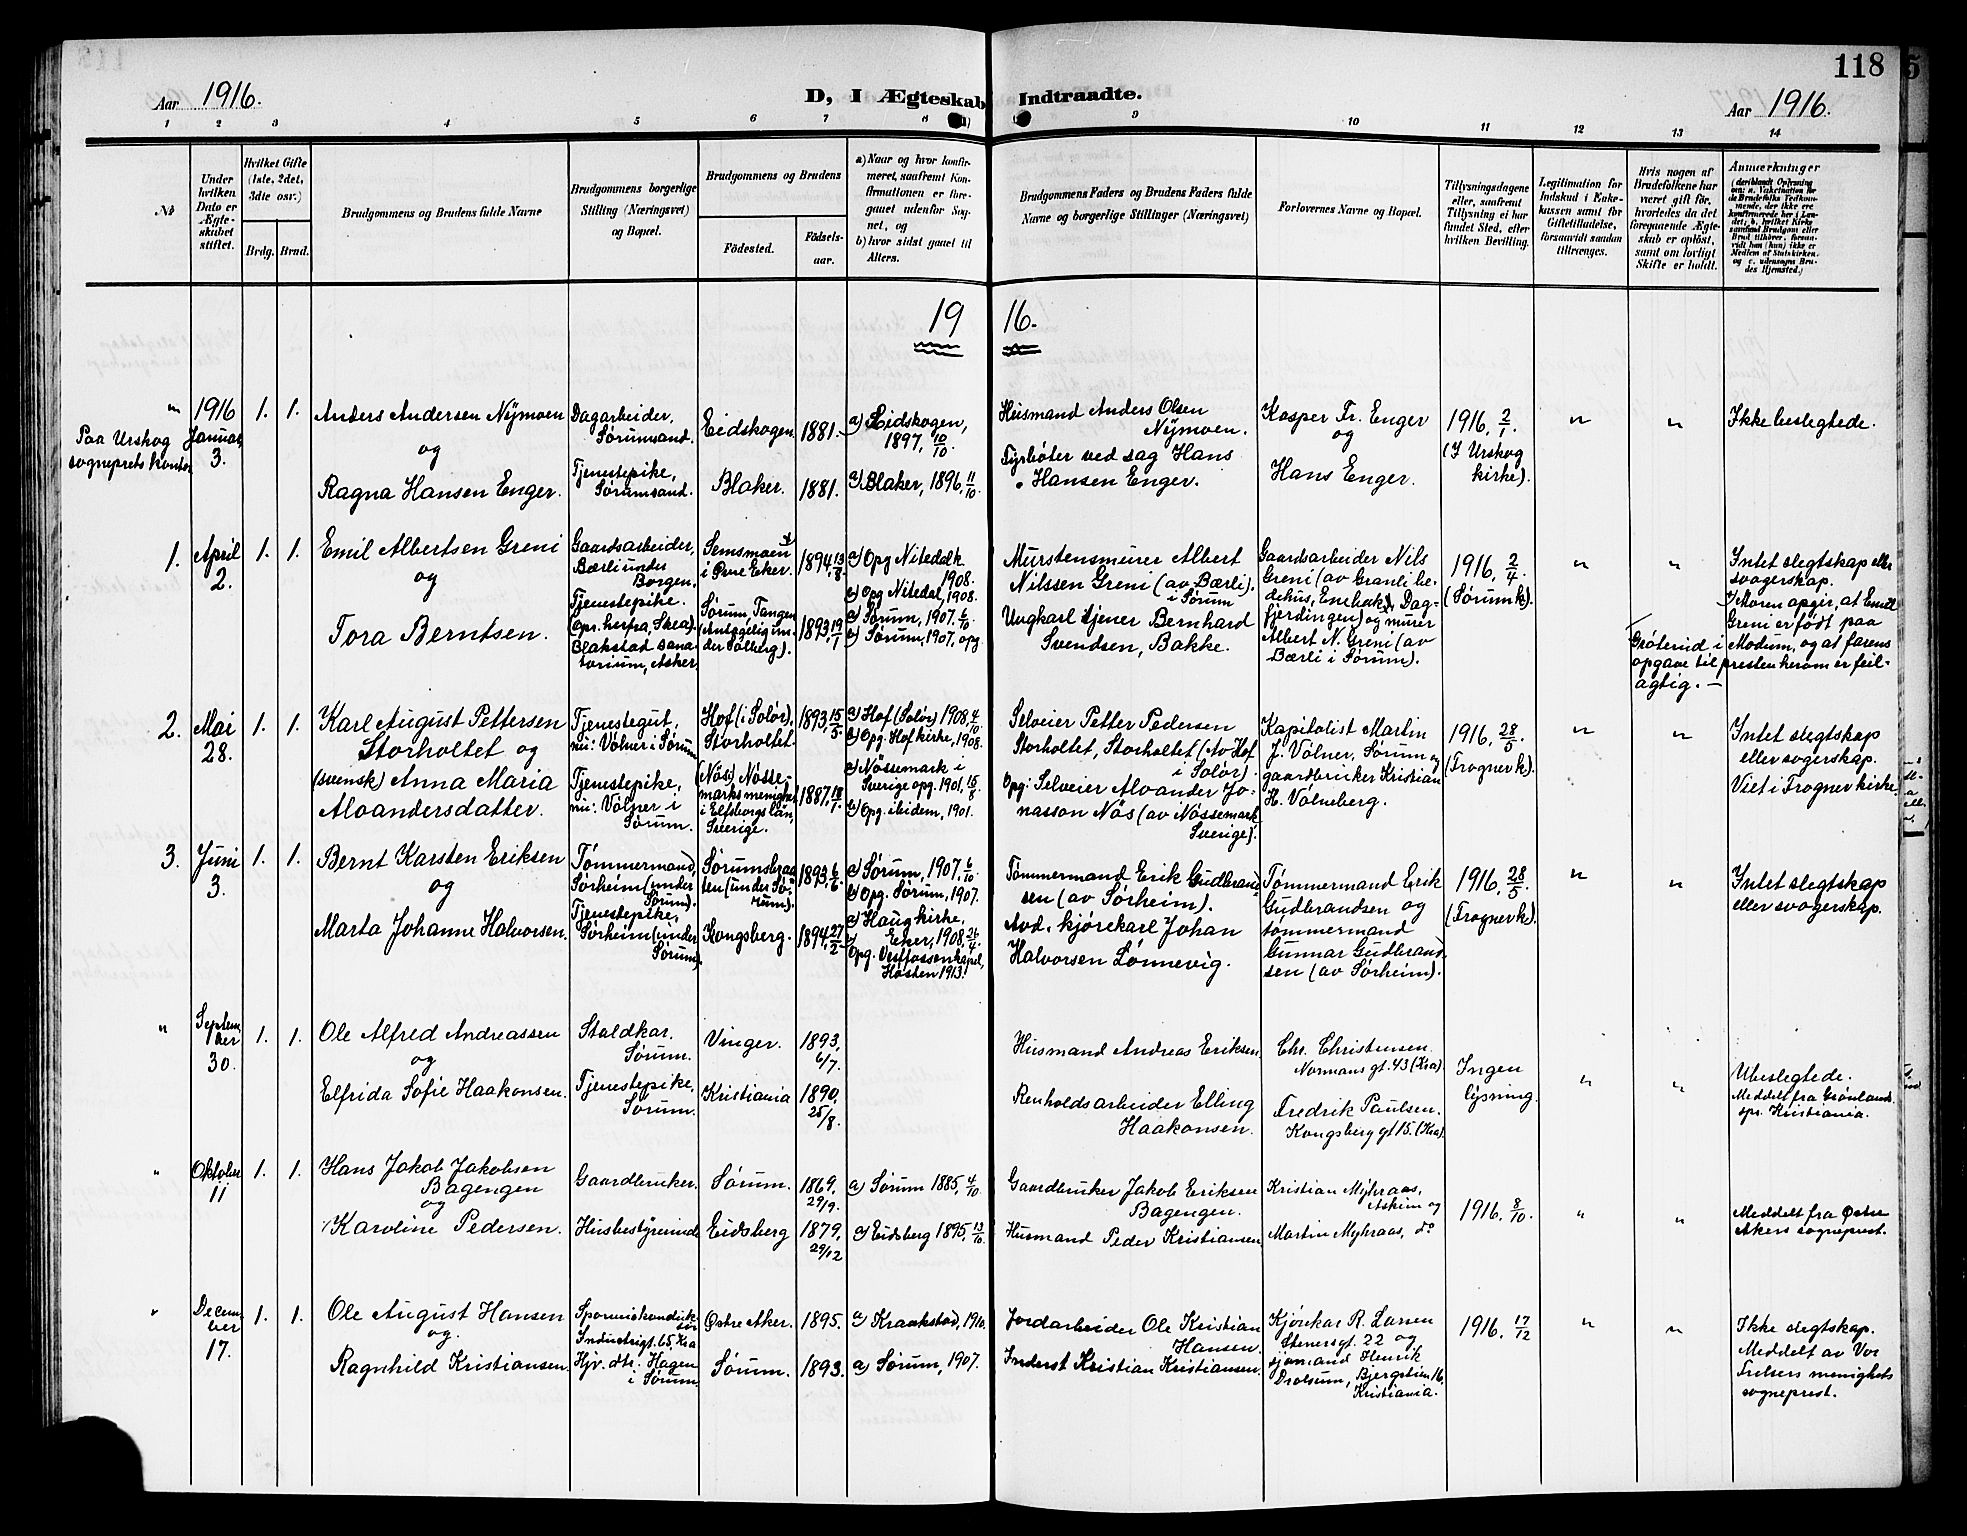 118
Aar 1916.
D, I Ægteskab Indtraadte.
Aar 1916.
1 2 3 4 5 6 7 8 9 10 11 12 13 14
No
Under hvilken Dato er Ægteskabet stiftet.
Hvilket Gifte (1ste, 2det, 3dte osv.)
Brdg. Brud.
Brudgommens og Brudens fulde Navne
Brudgommens borgerlige Stilling (Næringsvei) og Bopæl.
Brudgommens og Brudens
Födested.
Födselsaar.
a) Naar og hvor konfirmeret, saafremt Konfirmationen er foregaaet udenfor Sognet, og
b) hvor sidst gaaet til Alters.
Brudgommens Faders og Brudens Faders fulde Navne og borgerlige Stillinger (Næringsvei)
Forlovernes Navne og Bopæl.
Tillysningsdagene eller, saafremt Tillysning ei har fundet Sted, efter hvilken Bevilling.
Legitimation for Indskud i Enkekassen samt for Giftetilladelse, forsaavidt saadan tiltrænges.
Hvis nogen af Brudefolkene har været gift før, hvorledes da det foregaaende Ægteskab er oplöst, samt om lovligt Skifte er holdt.
Anmærkninger
19 16.
" 1916 Januar 3. 1. 1.
Paa Urskog sogneprets kontor
Anders Andersen Nÿmoen
og
Ragna Hansen Enger.
Dagarbeider, Sørumsand.
Tjenestepike, Sørumsand.
Eidskogen. 1881.
Blaker. 1881.
a) Eidskogen, 1897, 10/10
a) Blaker, 1896, 11/10
Husmand Anders Olsen Nÿmoen.
Fyrbøter ved sag Hans Hansen Enger.
Kasper Fr. Enger
og
Hans Enger.
1916, 2/1.
(I Urskog kirke).
" "
Ikke beslegtede.
1. April 2. 1. 1.
Emil Albertsen Greni
og
Tora Berntsen.
Gaardsarbeider, Bærli under Borgen.
Tjenestepike. (Opr. herfra, Skea). Blakstad sanatorium, Asker
Semsmoen i Øvre Eker. 1894, 13/8.
Sørum, Tangen (antagelig under Sølberg). 1893, 19/1
a) Opg Nitedal k 1908.
b) Opg Nitedal, 1908.
a) Sørum, 1907. 6/10
b) Sørum, 1907. opg
Murstensmurer Albert Nilssen Greni (av Bærli) i Sørum
Ungkarl tjener Bernhard Svendsen, Bakke.
Gaardsarbeider Nils Greni (av Granli bedehus, Enebak, Dagfjerdingen) og murer Albert N. Greni (av Bærli i Sørum).
1916, 2/4.
(Sørum k).
"
Intet slegtskap eller svogerskap.
Moren opgir, at Emil Greni er født paa Grøterud i Modum, og at farens opgave til presten herom er feilagtig. —
2. Mai 28. 1. 1.
Karl August Pettersen
Storholtet og
(svensk) Anna Maria
Aloandersdatter.
Tjenestegut, nu: Vølner i Sørum
Tjenestepike, nu: Vølner i Sørum.
Hof (i Solør). Storholtet. 1893, 15/5.
(Nös) Nössemarks menighet i Elfsborgs län, Sverige. 1887, 18/1
a) Hof (Solør) 1908, 4/10
b) Opg. Hof kirke, 1908.
a) Nössemark i Sverige opg. 1901, 15/8
b) Opg. ibidem, 1901.
Selveier Petter Pedersen Storholtet, Storholtet (Av Hof i Solør).
Opg: Selveier Aloander Jonasson Nös (av Nössemark Sverige).
Kapitalist Martin J. Vølner, Sørum og gaardbruker Kristian H. Vølneberg.
1916, 28/5
(Frogner k).
" "
Intet slegtskap eller svogerskap. Viet i Frogner kirke.
3. Juni 3. 1. 1.
Bernt Karsten Eriksen
og
Marta Johanne Halvorsen.
Tømmermand, Sørheim (under Sørum).
Tjenestepike, Sørheim (under Sørum).
Sørumsbraaten (under Sørum). 1893, 6/6.
Kongsberg. 1894, 27/2
a) Sørum, 1907, 6/10
b) Opg. Sørum, 1907.
a) Haug kirke, Eker, 1908, 26/4
Opg. Vestfossen kapel, Høsten 1913.
Tømmermand Erik Gudbrandsen (av Sørheim).
Avd. kjørekarl Johan Halvorsen Lønnevig.
Tømmermand Erik Gudbrandsen og tømmermand Gunnar Gudbrandsen (av Sørheim).
1916, 28/5
(Frogner k).
" "
Intet slegtskap eller svogerskap.
" September 30. 1. 1.
Ole Alfred Andreassen
og
Elfrida Sofie Haakonsen.
Staldkar. Sørum.
Tjenestepike, Sørum.
Vinger. 1893, 6/7.
Kristiania 1890, 25/8.
Husmand Andreas Eriksen
Renholdsarbeider Elling Haakonsen.
Chr. Christensen. Normans gt. 43 (Kra).
Fredrik Paulsen. Kongsberg gt 15. (Kra).
Ingen lysning.
" "
Ubeslegtede. Meddelt fra Grønlands spr. Kristiania.
" Oktober 11 1. 1.
Hans Jakob Jakobsen
Bagengen
og
Karoline Pedersen.
Gaardbruker.
Husbestyrerinde
Sørum. 1869, 29/9.
Eidsberg 1879, 29/12
a) Sørum 1885, 4/10
a) Eidsberg 1895, 13/10.
Gaardbruker Jakob Eriksen Bagengen.
Husmand Peder Kristiansen
Kristian Myhraas, Askim og
Martin Myhraas, do
1916, 8/10.
" "
Meddelt fra Østre Akers sogneprest.
" December 17. 1. 1.
Ole August Hansen
og.
Ragnhild Kristiansen.
Sporveiskonduktør Industrigt. 65, Kra
Hjv. dtr. Hagen i Sørum.
Østre Aker. 1895.
Sørum. 1893.
a) Kraakstad, 1910.
a) Sørum, 1907.
Jordarbeider Ole Kristian Hansen.
Inderst Kristian Kristiansen.
Kjørekar R. Larsen Stenersgt. 22 og sjømand Henrik Drolsum, Bjergstien 16 Kristiania.
1916, 17/12
" "
Ikke slegtskap. Meddelt av Vor Frelsers menighets sogneprest.